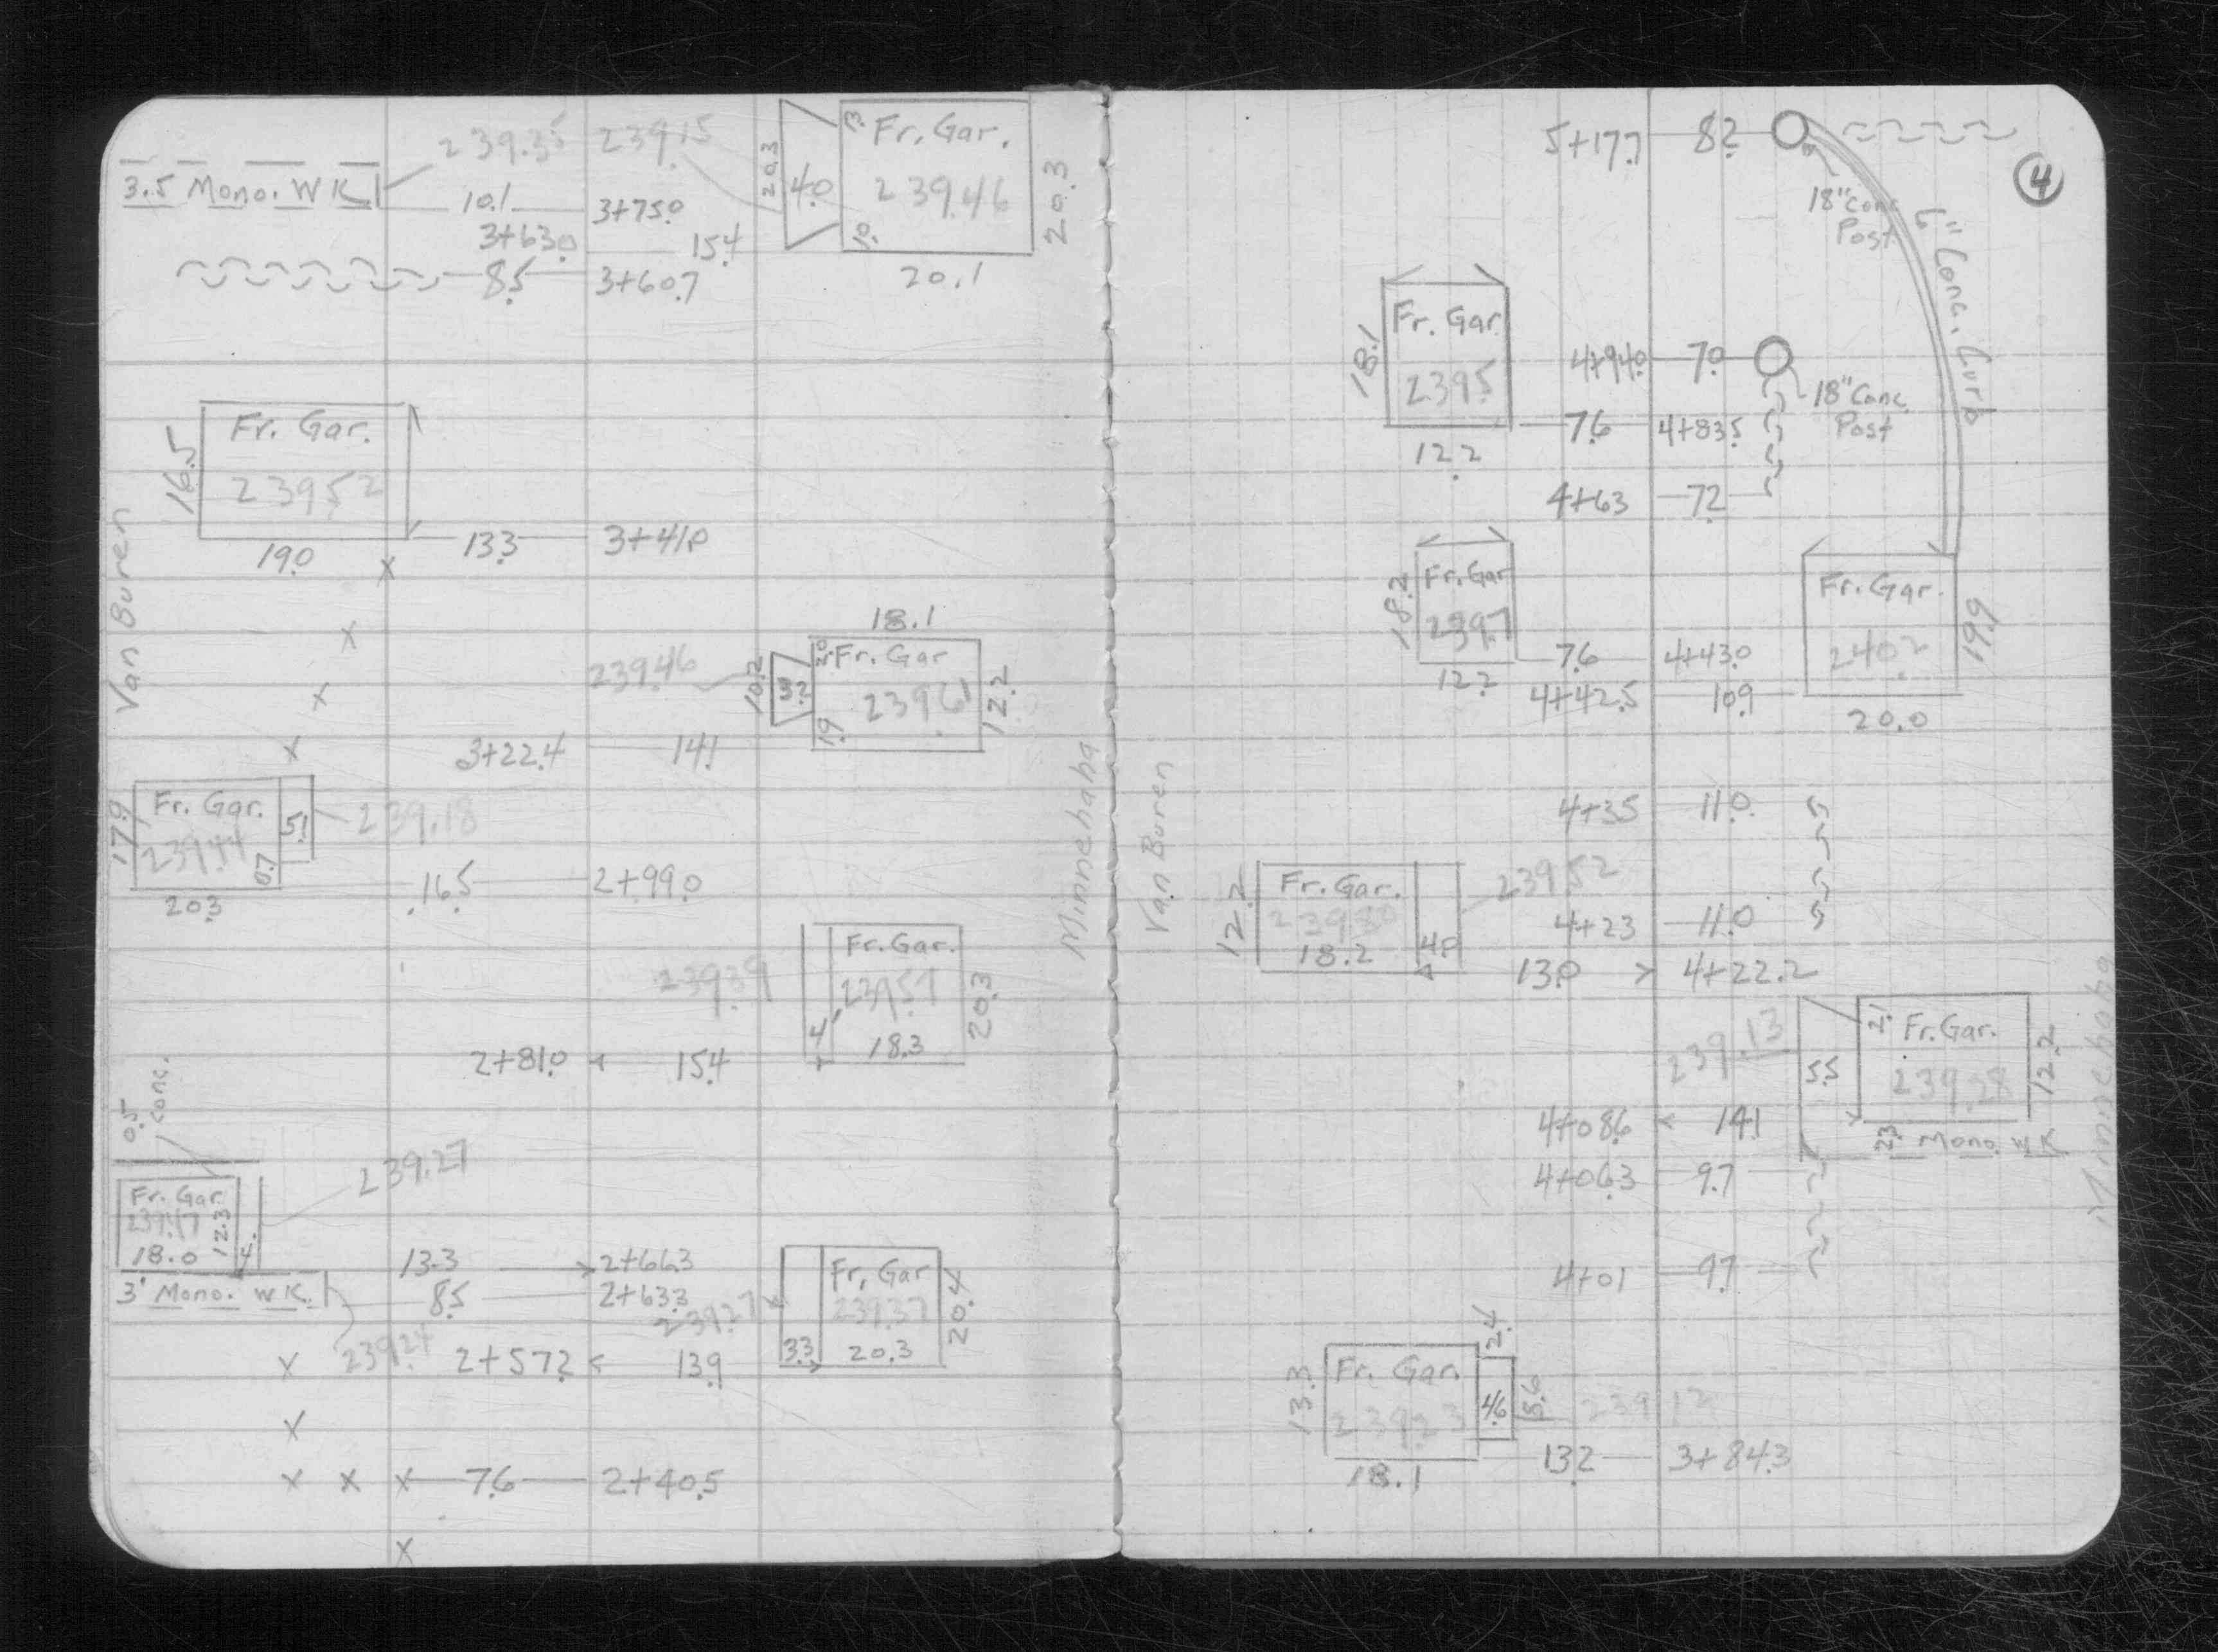 239.35 239.15
3.5 Mono. WK.
10.1 3+75.0
3+63.0 15.4
8.5 3+60.7
20.3 4.0 Fr. Gar.
239.46
20.3
20.1
Fr. Gar.
16.5
239.52
19.0
x 13.3 3+41.0
Van Buren
x
x
x
18.1
239.46
10.2 3.2 2.0 Fr. Gar
239.61
12.2
1.9
3+22.4 14.1
17.9 Fr. Gar. 5.1 239.18
239.44
0.7
20.3
16.5 2+99.0
Minnehaha
Fr. Gar.
239.39 239.57
20.3
4. 18.3
2+81.0 15.4
0.5 Conc.
239.27
Fr. Gar
12.3
18.0 4.
13.3 2+66.3
3' Mono. WK. 8.5 2+63.3
239.27
Fr. Gar
239.37
20.4
3.3 20.3
x 239.24 2+57.2 13.9
x
x x x 7.6 2+40.5
x
4
5+17.7 8.2
18" Conc. Post
6" Conc. Curb
Fr. Gar.
18.1
239.5
12.2
4+94.0 7.0
18" Conc. Post
7.6 4+83.5
4+63 7.2
Fr. Gar
18.2
239.7
12.2
7.6 4+43.0
4+42.5 10.9
Fr. Gar.
240.2
19.9
20.0
Van Buren
4+35 11.0
12.2 Fr. Gar. 239.52
239.80
18.2 4.0
4+23 11.0
13.0 4+22.2
239.13
5.5 2.1 Fr. Gar.
239.28
12.2
4+08.6 14.1
2.3 Mono. WK
4+06.3 9.7
Minnehaha
4+01 9.7
2.4
13.3 Fr. Gar. 4.6 5.6
239.23
18.1
13.2 3+84.3